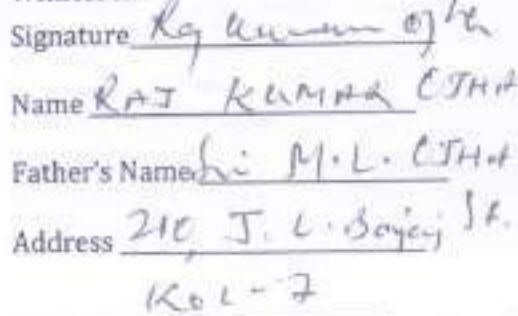 Signature Raj Kumar Ojha
Name RAJ KUMAR OJHA
Father's Name Sri M.L. OJHA
Address 210, J. L. Bajaj St.
KOL-7